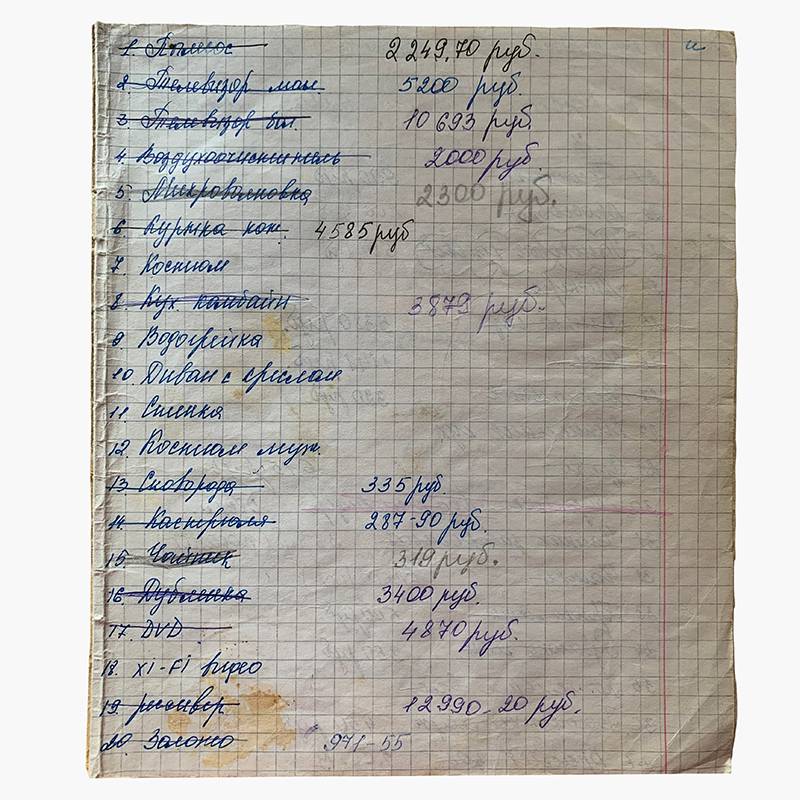 1. Пылесос 2 249,70 руб.
2. Телевизор мал. 5200 руб.
3. Телевизор бол. 10 693 руб.
4. Воздухоочиститель 2000 руб.
5. Микроволновка 2300 руб.
6. Куртка кож. 4585 руб
7. Костюм
8. Кух. комбайн 3879 руб.
9. Водогрейка
10. Диван с креслом
11. Стенка
12. Костюм муж.
13. Сковорода 335 руб.
14. Кастрюля 287-90 руб.
15. Чайник 319 руб.
16. Дубленка 3400 руб.
17. DVD 4870 руб.
18. XI-FI видео
19. ресивер 12 990-20 руб.
20. 971-55